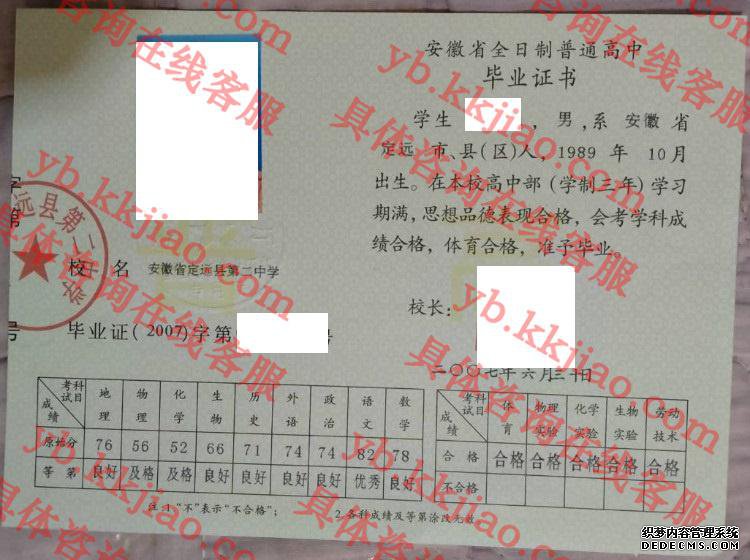 安徽省全日制普通高中
毕业证书
学生 ，男，系 安徽 省
定远 市、县(区)人，1989 年 10 月
出生。在本校高中部（学制三年）学习
期满，思想品德表现合格，会考学科成
绩合格，体育合格，准予毕业。
校长：
二〇〇七年六月三十日
字第
号
远县第二中学
校 名 安徽省定远县第二中学
毕业证(2007)字第 号
考试科目 成绩 地理 物理 化学 生物 历史 外语 政治 语文 数学
原始分 76 56 52 66 71 74 74 82 78
等 第 良好 及格 及格 良好 良好 良好 良好 优秀 良好
考试科目 成绩 体育 物理实验 化学实验 生物实验 劳动技术
合 格 合格 合格 合格 合格 合格
不合格
注:1."不"表示"不合格"; 2.各科成绩及等第涂改无效
yb.kkjiao.com
具体咨询在线客服
yb.kkjiao.com
具体咨询在线客服
yb.kkjiao.com
具体咨询在线客服
yb.kkjiao.com
具体咨询在线客服
织梦内容管理系统
DEDECMS.COM